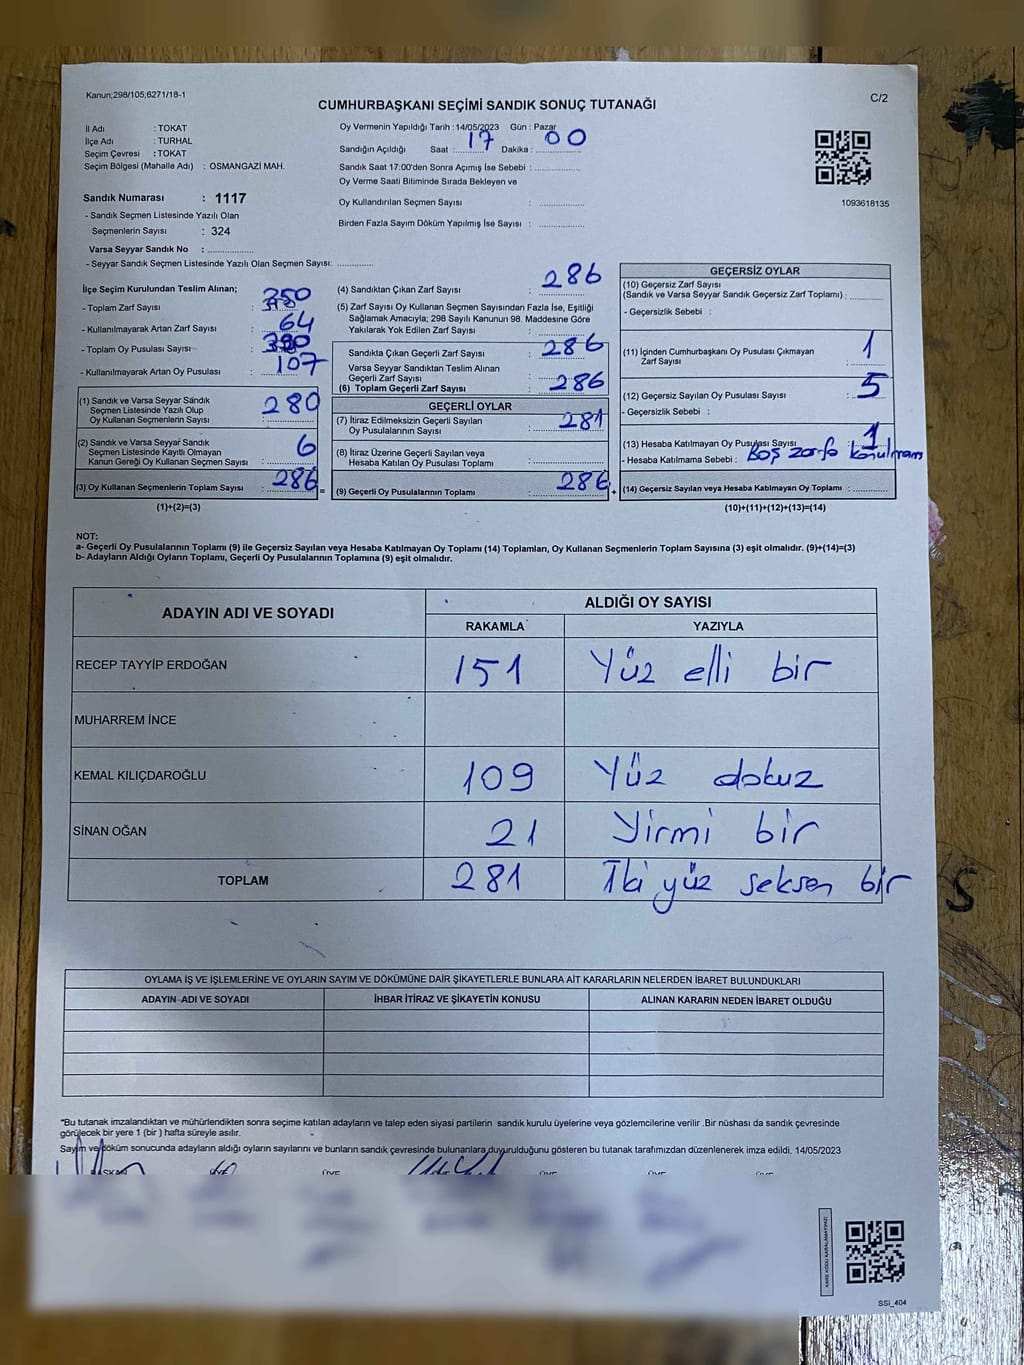 Kanun;298/105;6271/18-1
CUMHURBAŞKANI SEÇİMİ SANDIK SONUÇ TUTANAĞI
C/2
İl Adı : TOKAT
İlçe Adı : TURHAL
Seçim Çevresi : TOKAT
Seçim Bölgesi (Mahalle Adı) : OSMANGAZİ MAH.
Sandık Numarası : 1117
- Sandık Seçmen Listesinde Yazılı Olan
Seçmenlerin Sayısı : 324
Varsa Seyyar Sandık No :
- Seyyar Sandık Seçmen Listesinde Yazılı Olan Seçmen Sayısı:
Oy Vermenin Yapıldığı Tarih : 14/05/2023 Gün : Pazar
Sandığın Açıldığı Saat : 17 Dakika : 00
Sandık Saat 17:00'den Sonra Açılmış İse Sebebi :
Oy Verme Saati Bitiminde Sırada Bekleyen ve
Oy Kullandırılan Seçmen Sayısı :
Birden Fazla Sayım Döküm Yapılmış İse Sayısı :
1093618135
İlçe Seçim Kurulundan Teslim Alınan;
- Toplam Zarf Sayısı : 350
- Kullanılmayarak Artan Zarf Sayısı : 64
- Toplam Oy Pusulası Sayısı :
- Kullanılmayarak Artan Oy Pusulası : 107
(1) Sandık ve Varsa Seyyar Sandık
Seçmen Listesinde Yazılı Olup
Oy Kullanan Seçmenlerin Sayısı : 280
(2) Sandık ve Varsa Seyyar Sandık
Seçmen Listesinde Kayıtlı Olmayan
Kanun Gereği Oy Kullanan Seçmen Sayısı : 6
(3) Oy Kullanan Seçmenlerin Toplam Sayısı : 286 =
(1)+(2)=(3)
(4) Sandıktan Çıkan Zarf Sayısı : 286
(5) Zarf Sayısı Oy Kullanan Seçmen Sayısından Fazla İse, Eşitliği
Sağlamak Amacıyla; 298 Sayılı Kanunun 98. Maddesine Göre
Yakılarak Yok Edilen Zarf Sayısı :
Sandıkta Çıkan Geçerli Zarf Sayısı : 286
Varsa Seyyar Sandıktan Teslim Alınan
Geçerli Zarf Sayısı :
(6) Toplam Geçerli Zarf Sayısı : 286
GEÇERLİ OYLAR
(7) İtiraz Edilmeksizin Geçerli Sayılan
Oy Pusulalarının Sayısı : 281
(8) İtiraz Üzerine Geçerli Sayılan veya
Hesaba Katılan Oy Pusulası Toplamı :
(9) Geçerli Oy Pusulalarının Toplamı : 286 +
GEÇERSİZ OYLAR
(10) Geçersiz Zarf Sayısı
(Sandık ve Varsa Seyyar Sandık Geçersiz Zarf Toplamı) :
- Geçersizlik Sebebi :
(11) İçinden Cumhurbaşkanı Oy Pusulası Çıkmayan
Zarf Sayısı : 1
(12) Geçersiz Sayılan Oy Pusulası Sayısı : 5
- Geçersizlik Sebebi :
(13) Hesaba Katılmayan Oy Pusulası Sayısı 1
- Hesaba Katılmama Sebebi : Boş zarfa
(14) Geçersiz Sayılan veya Hesaba Katılmayan Oy Toplamı :
(10)+(11)+(12)+(13)=(14)
NOT:
a- Geçerli Oy Pusulalarının Toplamı (9) ile Geçersiz Sayılan veya Hesaba Katılmayan Oy Toplamı (14) Toplamları, Oy Kullanan Seçmenlerin Toplam Sayısına (3) eşit olmalıdır. (9)+(14)=(3)
b- Adayların Aldığı Oyların Toplamı, Geçerli Oy Pusulalarının Toplamına (9) eşit olmalıdır.
ADAYIN ADI VE SOYADI
ALDIĞI OY SAYISI
RAKAMLA YAZIYLA
RECEP TAYYİP ERDOĞAN 151 Yüz elli bir
MUHARREM İNCE
KEMAL KILIÇDAROĞLU 109 Yüz dokuz
SİNAN OĞAN 21 Yirmi bir
TOPLAM 281 İki yüz seksen bir
OYLAMA İŞ VE İŞLEMLERİNE VE OYLARIN SAYIM VE DÖKÜMÜNE DAİR ŞİKAYETLERLE BUNLARA AİT KARARLARIN NELERDEN İBARET BULUNDUKLARI
ADAYIN ADI VE SOYADI İHBAR İTİRAZ VE ŞİKAYETİN KONUSU ALINAN KARARIN NEDEN İBARET OLDUĞU
*Bu tutanak imzalandıktan ve mühürlendikten sonra seçime katılan adayların ve talep eden siyasi partilerin sandık kurulu üyelerine veya gözlemcilerine verilir .Bir nüshası da sandık çevresinde
görülecek bir yere 1 (bir ) hafta süreyle asılır.
Sayım ve döküm sonucunda adayların aldığı oyların sayılarını ve bunların sandık çevresinde bulunanlara duyurulduğunu gösteren bu tutanak tarafımızdan düzenlenerek imza edildi. 14/05/2023
SSi_404